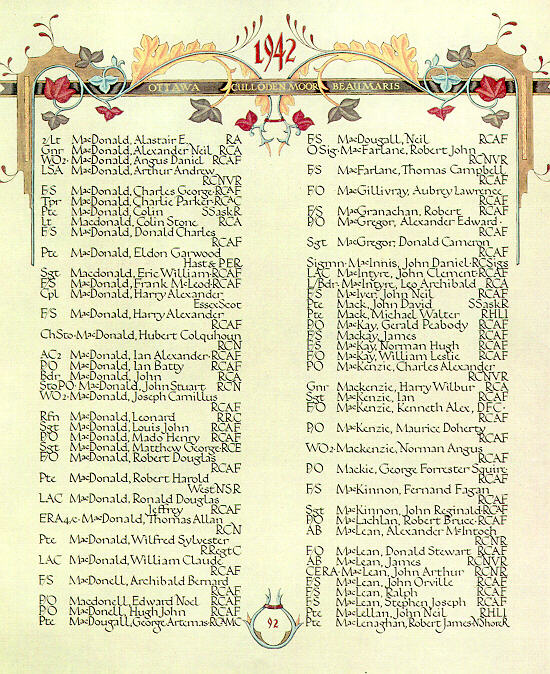 1942
OTTAWA CULLODEN MOOR BEAUMARIS
2/Lt MacDonald, Alastair E. RA
Gnr MacDonald, Alexander Neil RCA
WO2 MacDonald, Angus Daniel RCAF
LSA MacDonald, Arthur Andrew
RCNVR
F/S MacDonald, Charles George RCAF
Tpr MacDonald, Charlie Parker RCAC
Pte MacDonald, Colin SSaskR
Lt Macdonald, Colin Stone RCA
F/S MacDonald, Donald Charles
RCAF
Pte MacDonald, Eldon Garwood
Hast & PER
Sgt Macdonald, Eric William RCAF
F/S MacDonald, Frank McLeod RCAF
Cpl MacDonald, Harry Alexander
EssexScot
F/S MacDonald, Harry Alexander
RCAF
ChSto MacDonald, Hubert Colquhoun
RCN
AC2 MacDonald, Ian Alexander RCAF
P/O MacDonald, Ian Batty RCAF
Bdr MacDonald, John RCA
StoPO MacDonald, John Stuart RCN
WO2 MacDonald, Joseph Camillus
RCAF
Rfn MacDonald, Leonard RRC
Sgt MacDonald, Louis John RCAF
P/O MacDonald, Mado Henry RCAF
Sgt MacDonald, Matthew George RCE
F/O MacDonald, Robert Douglas
RCAF
Pte MacDonald, Robert Harold
WestNSR
LAC MacDonald, Ronald Douglas
Jeffrey RCAF
ERA4/c MacDonald, Thomas Allan
RCN
Pte MacDonald, Wilfred Sylvester
RRegtC
LAC MacDonald, William Claude
RCAF
F/S MacDonell, Archibald Bernard
RCAF
P/O Macdonell, Edward Noel RCAF
P/O MacDonell, Hugh John RCAF
Pte MacDougall, George Artemas RCAMC
F/S MacDougall, Neil RCAF
OSig MacFarlane, Robert John
RCNVR
F/S MacFarlane, Thomas Campbell
RCAF
F/O MacGillivray, Aubrey Lawrence
RCAF
F/S MacGranachan, Robert RCAF
P/O MacGregor, Alexander Edward
RCAF
Sgt MacGregor, Donald Cameron
RCAF
Sigmn MacInnis, John Daniel RCSigs
LAC MacIntyre, John Clement RCAF
L/Bdr MacIntyre, Leo Archibald RCA
F/S MacIver, John Neil RCAF
Pte Mack, John David SSaskR
Pte Mack, Michael Walter RHLI
P/O MacKay, Gerald Peabody RCAF
F/S Mackay, James RCAF
F/S MacKay, Norman Hugh RCAF
F/O MacKay, William Leslie RCAF
PO MacKenzie, Charles Alexander
RCNVR
Gnr Mackenzie, Harry Wilbur RCA
Sgt MacKenzie, Ian RCAF
F/O MacKenzie, Kenneth Alex, DFC
RCAF
P/O MacKenzie, Maurice Doherty
RCAF
WO2 Mackenzie, Norman Angus
RCAF
P/O Mackie, George Forrester Squire
RCAF
F/S MacKinnon, Fernand Fagan
RCAF
Sgt MacKinnon, John Reginald RCAF
P/O MacLachlan, Robert Bruce RCAF
AB MacLean, Alexander McIntoch
RCNR
F/O MacLean, Donald Stewart RCAF
AB MacLean, James RCNVR
CERA MacLean, John Arthur RCNR
F/S MacLean, John Orville RCAF
F/S MacLean, Ralph RCAF
F/S MacLean, Stephen Joseph RCAF
Pte MacLellan, John Neil RHLI
Pte MacLenaghan, Robert James NShoreR
92